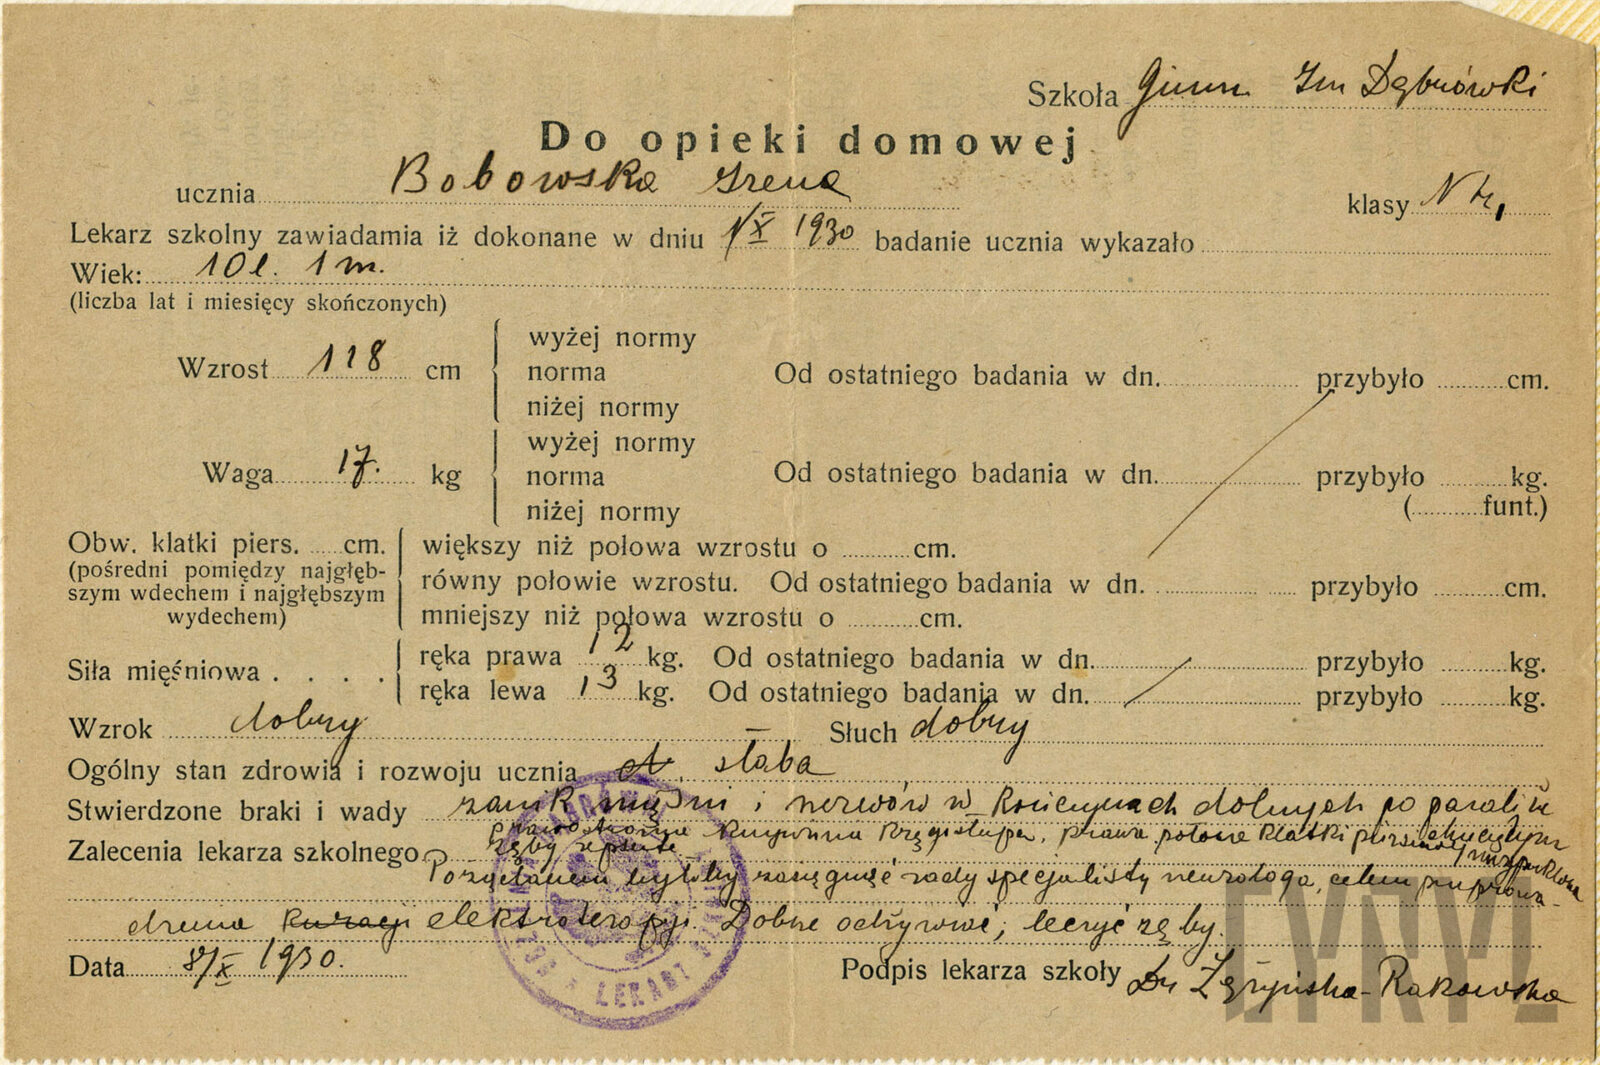 Szkoła Gimn Im Dąbrówki
Do opieki domowej
ucznia Bobowska Irena klasy
Lekarz szkolny zawiadamia iż dokonane w dniu 1/X 1930 badanie ucznia wykazało
Wiek: 10 l. 1 m.
(liczba lat i miesięcy skończonych)
wyżej normy
Wzrost 118 cm norma Od ostatniego badania w dn. przybyło cm.
niżej normy
wyżej normy
Waga 17. kg norma Od ostatniego badania w dn. przybyło kg.
niżej normy ( funt.)
Obw. klatki piers. cm. większy niż połowa wzrostu o cm.
(pośredni pomiędzy najgłęb-
szym wdechem i najgłębszym równy połowie wzrostu. Od ostatniego badania w dn. przybyło cm.
wydechem) mniejszy niż połowa wzrostu o cm.
Siła mięśniowa . . . . ręka prawa 12 kg. Od ostatniego badania w dn. przybyło kg.
ręka lewa 13 kg. Od ostatniego badania w dn. przybyło kg.
Wzrok dobry — Słuch dobry
Ogólny stan zdrowia i rozwoju ucznia słaba
Stwierdzone braki i wady zanik mięśni i nerwów w kończynach dolnych po paraliżu
prawostronne skrzywienie kręgosłupa, prawa połowa klatki piersiowej
Zalecenia lekarza szkolnego zęby zepsute
Pożądanem byłoby zasięgnąć rady specjalisty neurologa, celem przeprowa-
dzenia kuracji elektroterapji. Dobrze odżywiać, leczyć zęby.
Data 8/X 1930. Podpis lekarza szkoły Dr Zężyńska-Rakowska
LEKARZ